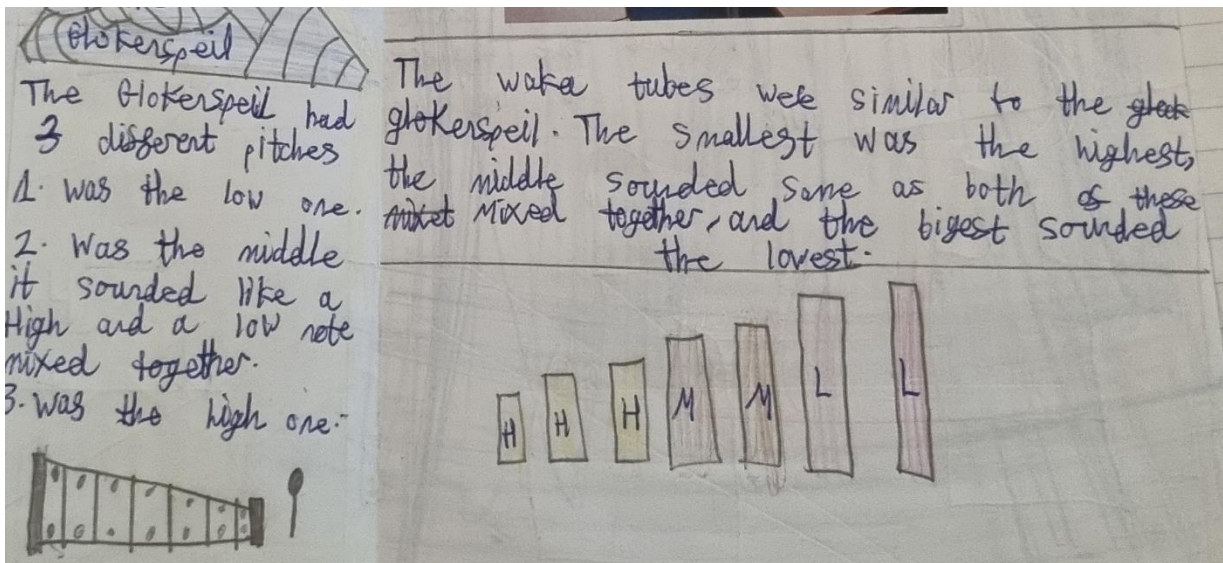 Glokerspeil
The Glokerspeil had
3 different pitches
1. was the low one.
2. Was the middle
it sounded like a
High and a low note
mixed together.
3. was the high one.
The waka tubes wele similar to the glock
glokerspeil. The smallest was the highest,
the middle sounded same as both of these
mixet Mixed together, and the bigest sounded
the lowest.
H H H M M L L